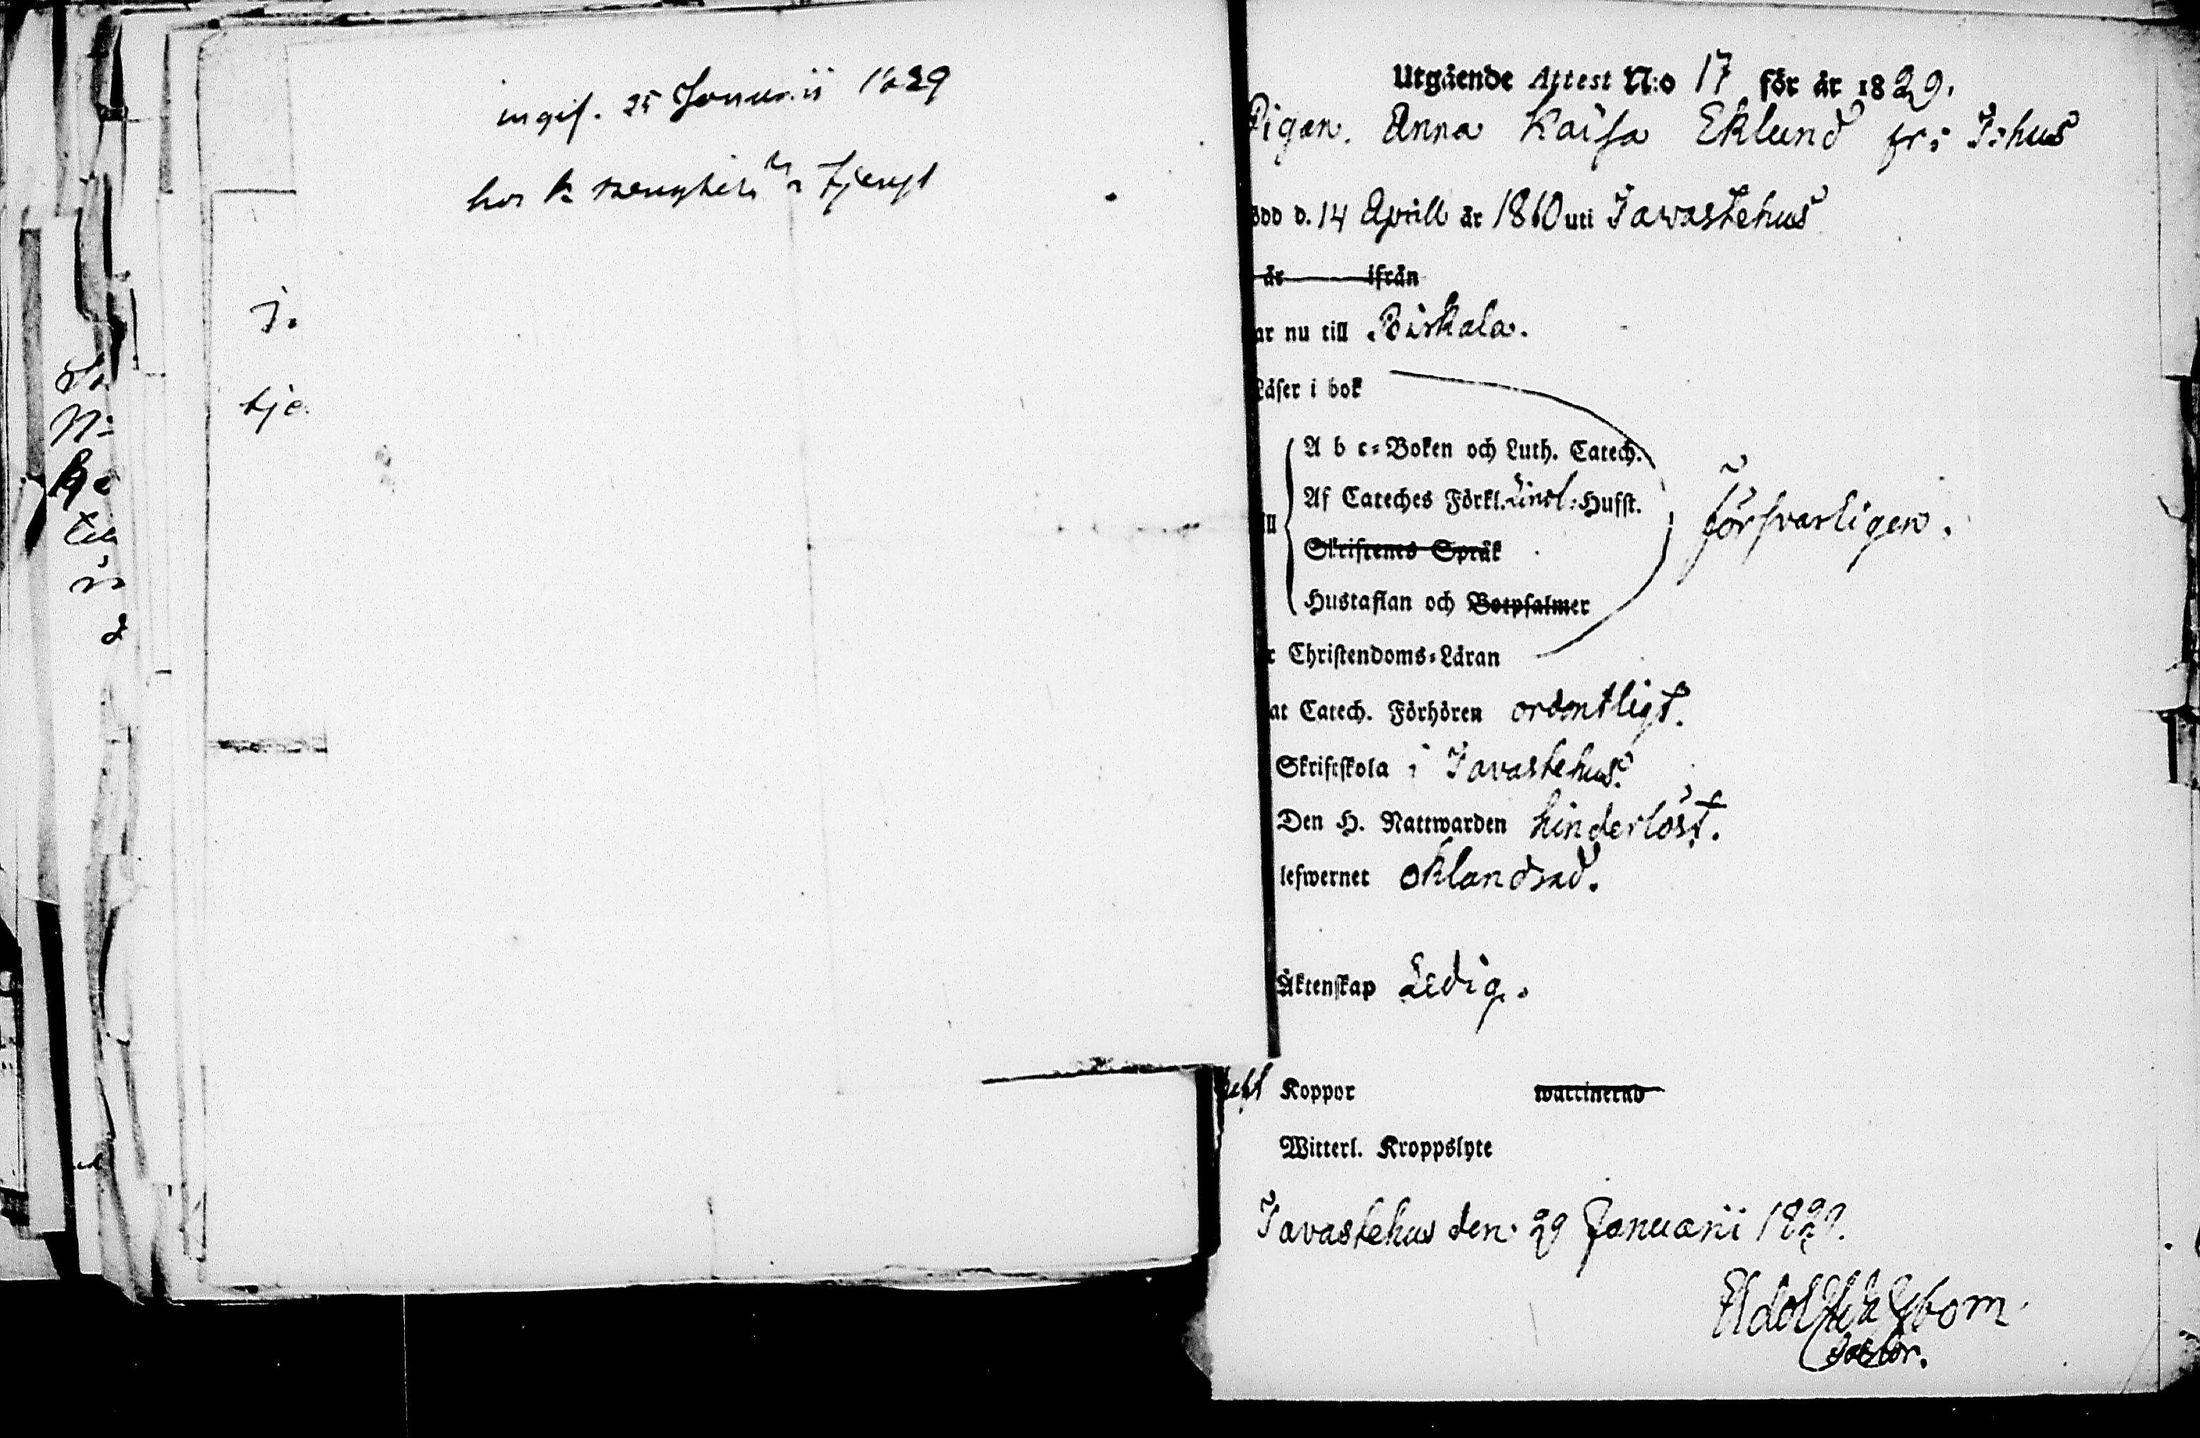 ingif. 25 Januarii 1829
hos
tje
Utgående Attest N:o 17 för år 1829.
Pigan. Anna Kaisa Eklund fr: T:hus
ödd d. 14 Aprill år 1810 uti Tawastehus
år ifrån
ar nu till Birkala.
Läser i bok
A b c-Boken och Luth. Catech.
Af Cateches Förkl. Lindl: Hufst.
Skriftenes Språk
Hustaflan och Botpsalmer
försvarligen.
r Christendoms-Läran
at Catech. Förhören ordentligt.
Skriftskola i Tavastehus.
Den H. Nattwarden hinderlöst.
lefwernet oklandrad.
Äktenskap Ledig.
haft Koppor waccinerad
Witterl. Kroppslyte
Tavastehus den 29 Januarii 1829.
Pastor.